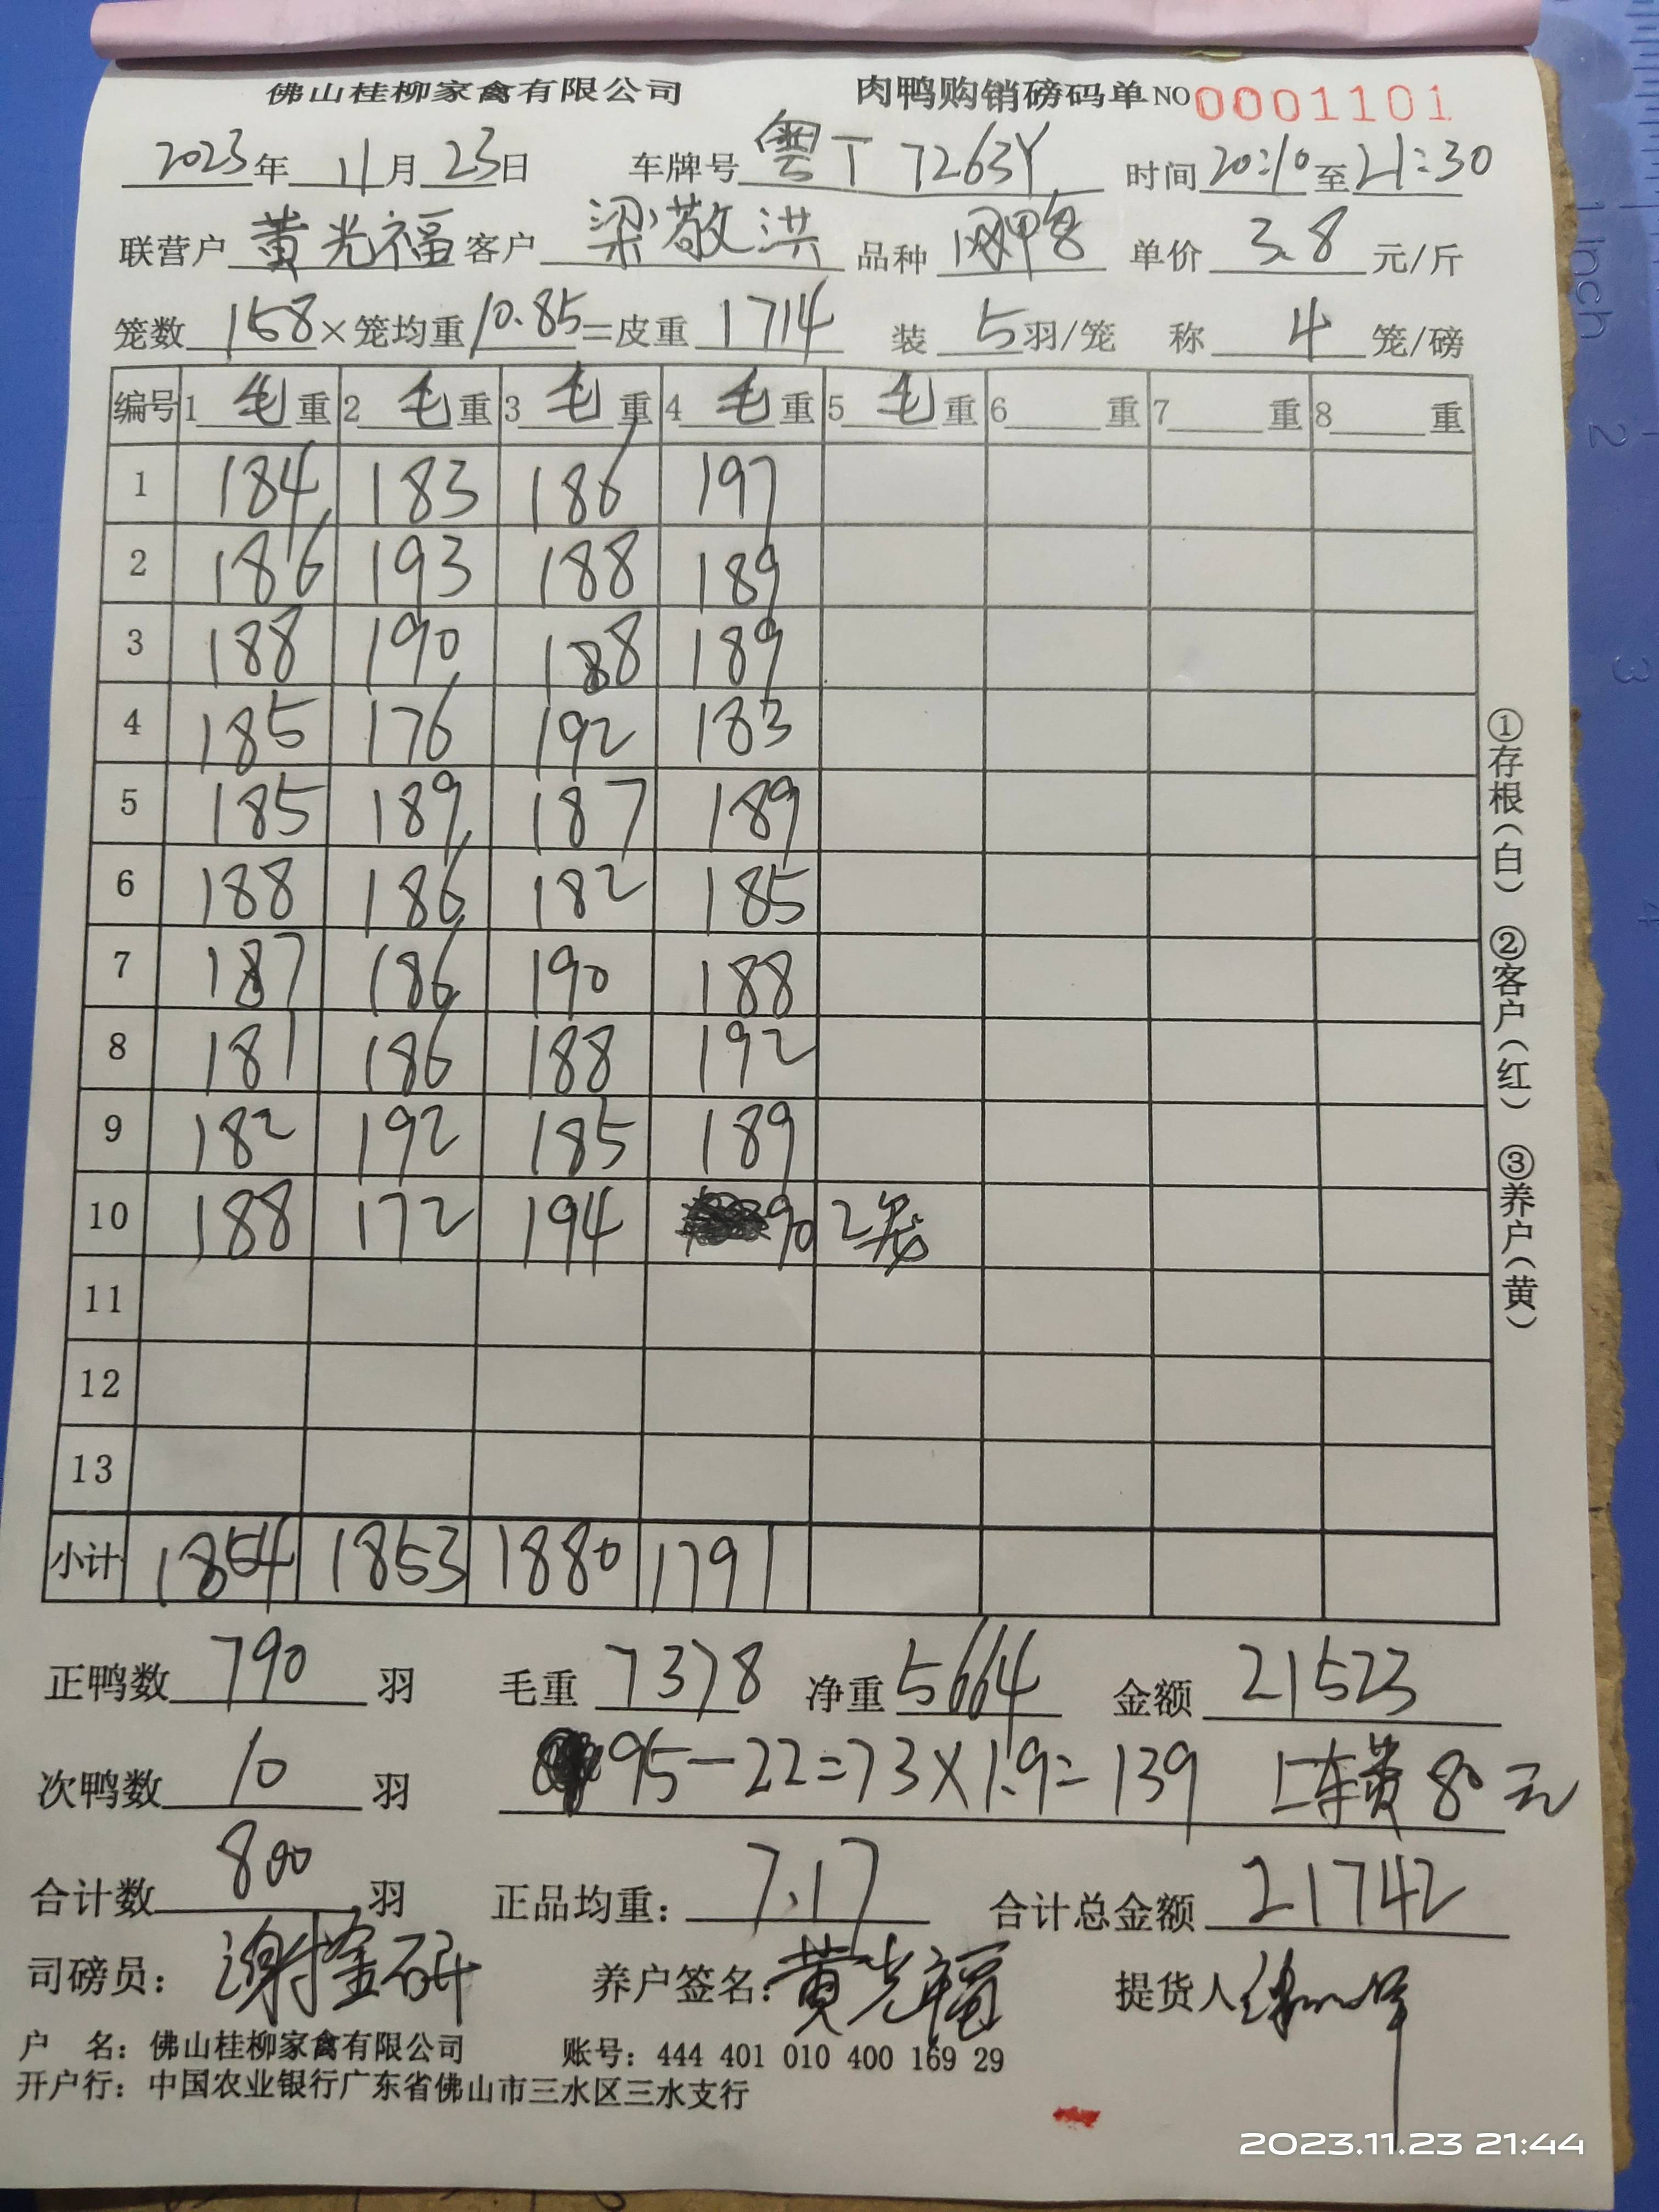 佛山桂柳家禽有限公司 肉鸭购销磅码单 NO 0001101
2023年 11月 23日 车牌号 粤T 7263Y 时间 20:10 至 21:30
联营户 黄光福 客户 梁敬洪 品种 单价 3.8 元/斤
笼数 158 ×笼均重 10.85 =皮重 1714 装 5 羽/笼 称 4 笼/磅
编号 1 毛 重 2 毛 重 3 毛 重 4 毛 重 5 毛 重 6 重 7 重 8 重
1 184 183 186 197
2 186 193 188 189
3 188 190 188 189
4 185 176 192 183
5 185 189 187 189
6 188 186 182 185
7 187 186 190 188
8 181 186 188 192
9 182 192 185 189
10 188 172 194 90 2笼
11
12
13
小计 1854 1853 1880 1791
正鸭数 790 羽 毛重 7378 净重 5664 金额 21523
次鸭数 10 羽 95-22=73×1.9=139 上车费 80元
合计数 800 羽 正品均重: 7.17 合计总金额 21742
司磅员: 养户签名: 黄光福 提货人
户 名: 佛山桂柳家禽有限公司 账号: 444 401 010 400 169 29
开户行: 中国农业银行广东省佛山市三水区三水支行
①存根(白) ②客户(红) ③养户(黄)
1 Inch 2 3 4
2023.11.23 21:44